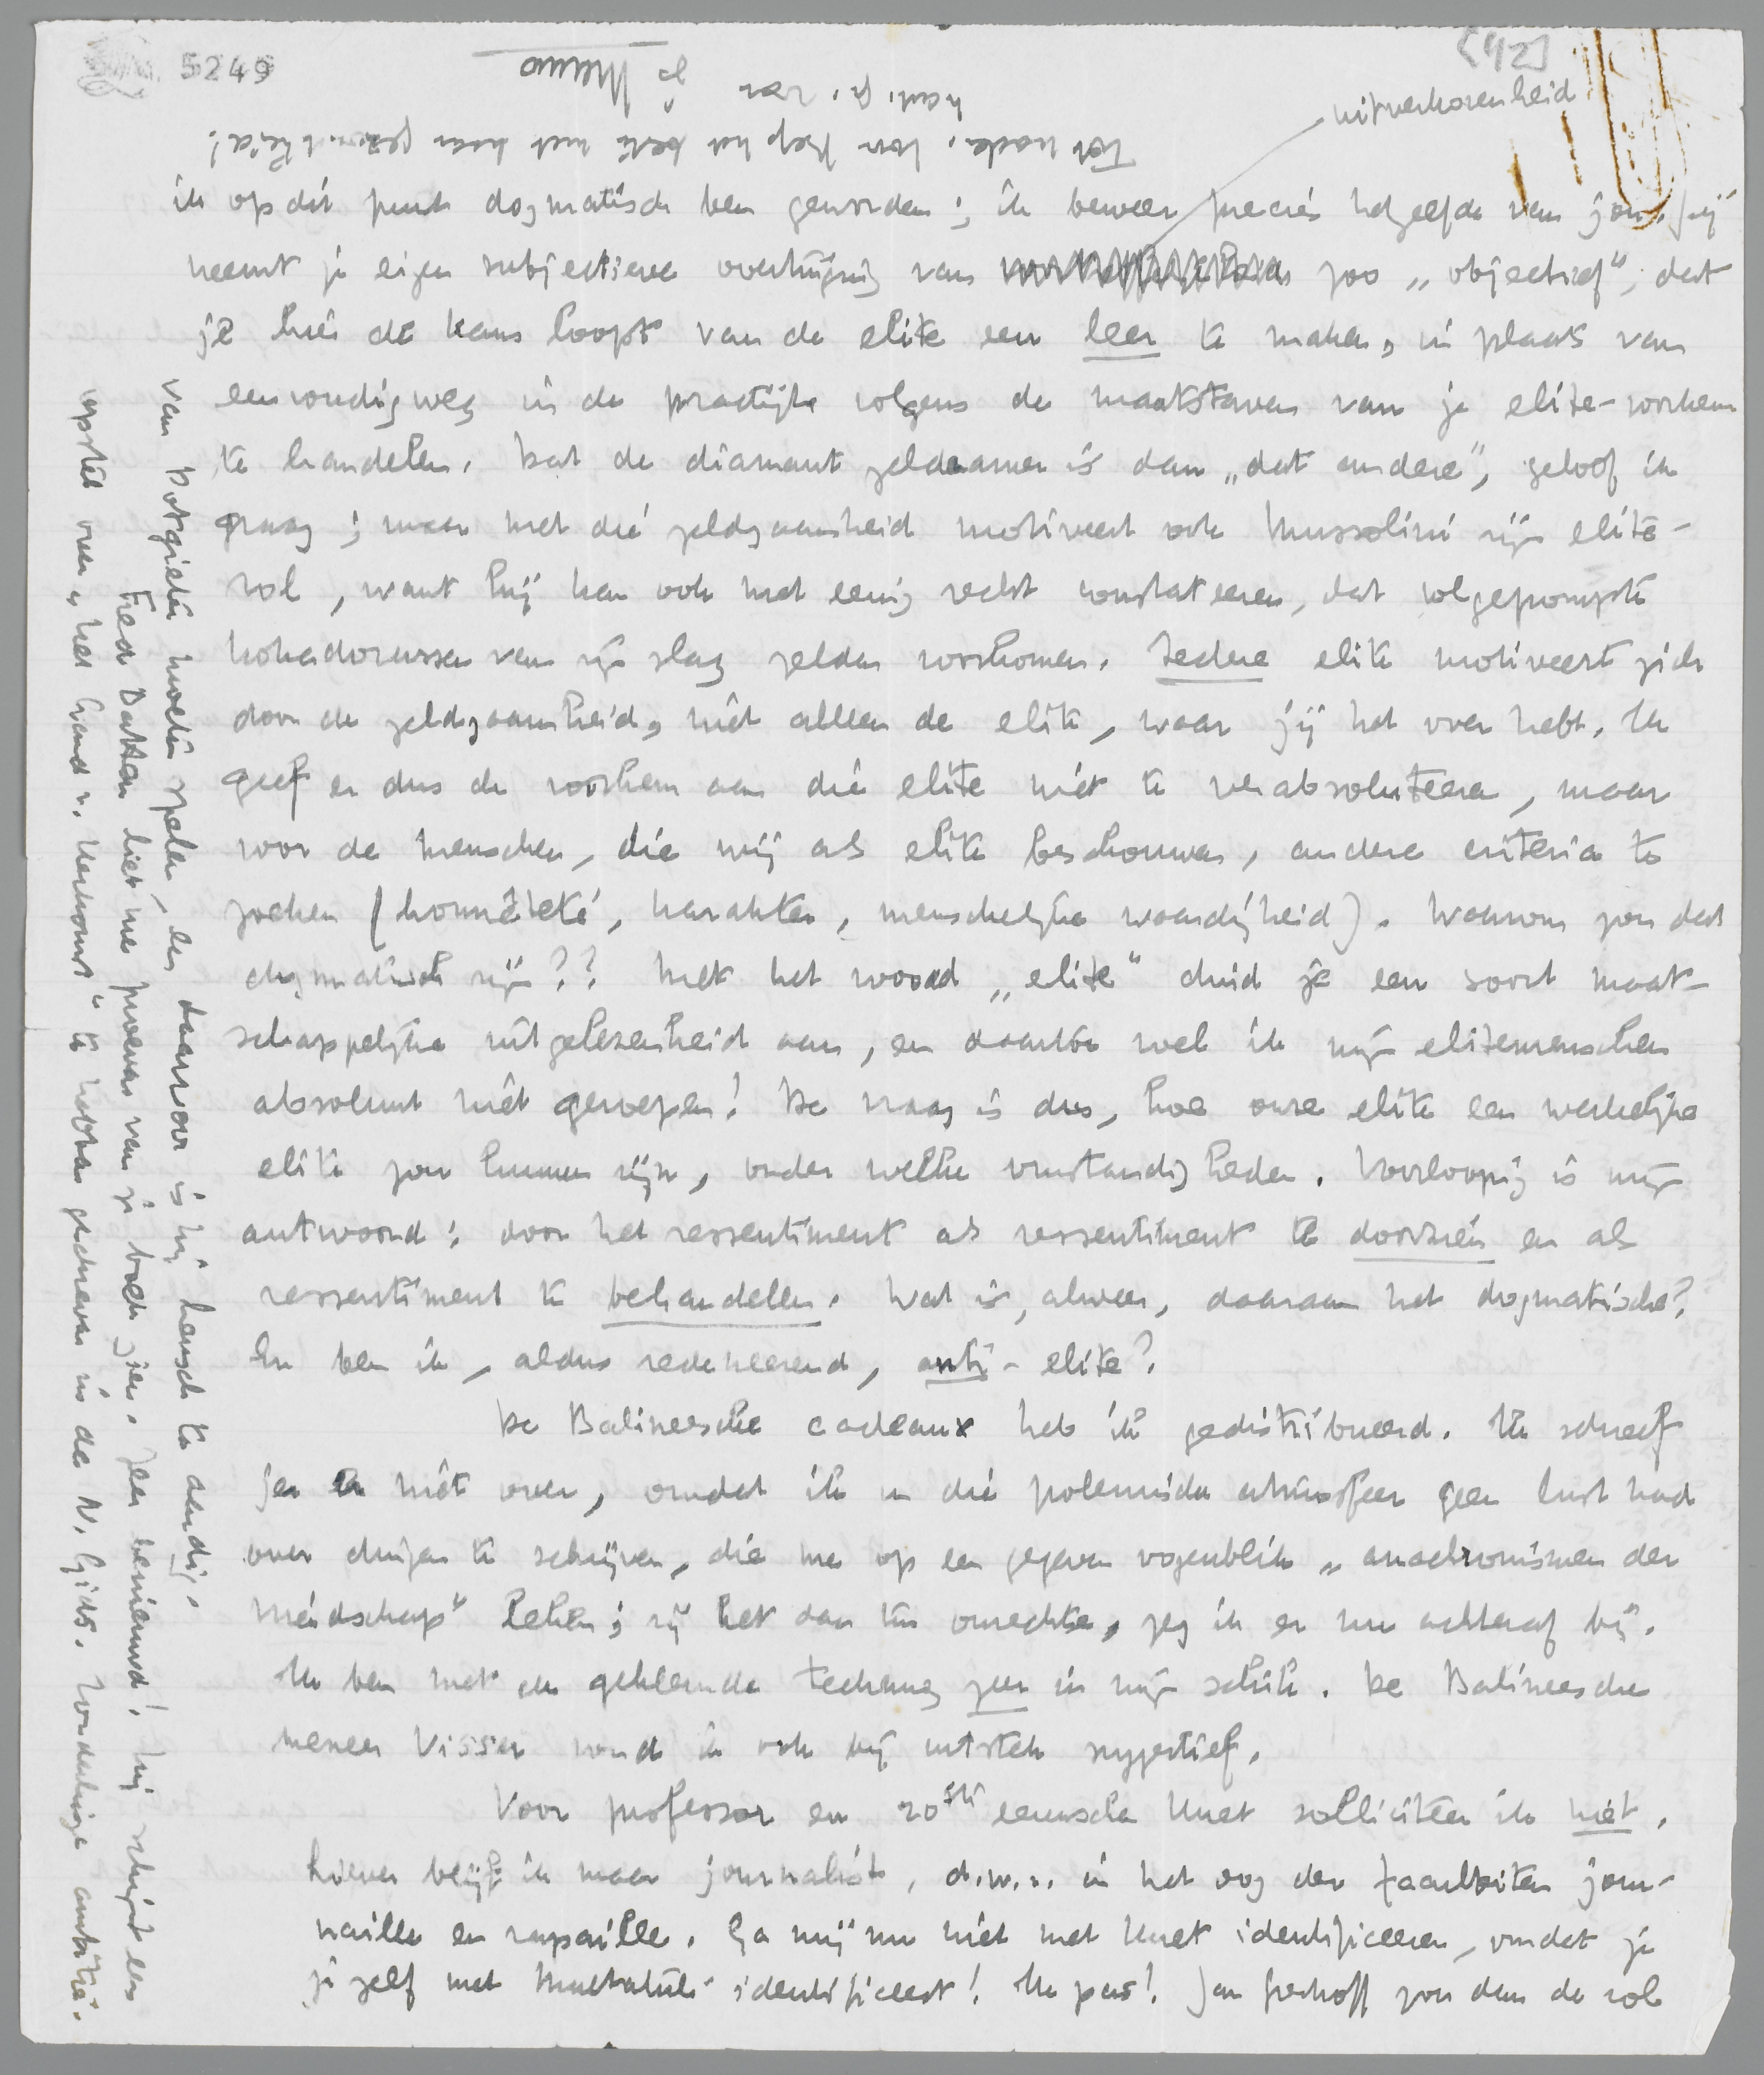 5249
[42]
uitverkorenheid
ik op dit punt dogmatisch ben geworden; ik beweer precies hetzelfde van jou. Jij
neemt je eigen subjectieve overtuiging van zoo „objectief", dat
je hier de kans loopt van de elite een leer te maken, in plaats van
eenvoudigweg in de practijk volgens de maatstaven van je elite-voorkeur
te handelen. Dat de diamant zeldzamer is dan „dat andere", geloof ik
graag; maar met die zeldzaamheid motiveert ook Mussolini zijn elite-
rol, want hij kan ook met eenig recht constateeren, dat volgepompte
kokadorussen van zijn slag zelden voorkomen. Iedere elite motiveert zich
door de zeldzaamheid, niet alleen de elite, waar jij het over hebt. Ik
geef er dus de voorkeur aan die elite niet te verabsoluteeren, maar
voor de menschen, die wij als elite beschouwen, andere criteria te
zoeken (honnêteté, karakter, menschelijke waardigheid). Waarom zou dat
dogmatisch zijn?? Met het woord „elite" duid je een soort maat-
schappelijke uitgelezenheid aan, en daarvoor wil ik mijn elitemenschen
absoluut niet genepen! De vraag is dus, hoe onze elite een werkelijke
elite zou kunnen zijn, onder welke omstandigheden. Voorloopig is mijn
antwoord: door het ressentiment als ressentiment te doorzien en als
ressentiment te behandelen. Wat is, alweer, daaraan het dogmatische?
En ben ik, aldus redeneerend, anti-elite?
De Balineesche cadeaux heb ik gedistribueerd. Ik schreef
je er niet over, omdat ik in die polemische atmosfeer geen lust had
over dingen te schrijven, die me op een gegeven oogenblik „anachronismen der
vriendschap" leken; zij het dan ten onrechte, zeg ik er nu achteraf bij.
Ik ben met de gekleurde teekening zeer in mijn schik. De Balineesche
meneer Visser vond ik ook bij uitstek suggestief.
Voor professor en 20ste eeuwsche Huet solliciteer ik niet.
Liever blijf ik maar journalist, d.w.z. in het oog der faculteiten jour-
naille en rapaille. Ga mij nu niet met Huet identificeeren, omdat je
je zelf met Multatuli identificeert! Ik pas! Jan Greshoff zou dan de rol
van Potgieter moeten spelen, en daarvoor is hij heusch te aardig.
Fred Batten liet me proeven van je boek zien. Zeer benieuwd! Hij schijnt een
opstel over „Het Land v. Herkomst" te hebben geschreven in de N. Gids. Zonderlinge ambitie.
Tot nader, hou Bep het beste met haar gezondheid!
hart. gr. van je Menno